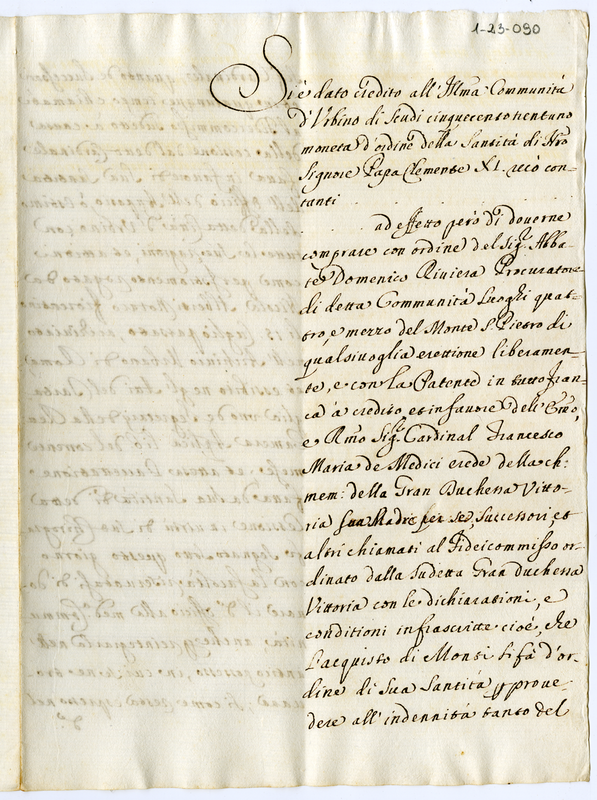 1-23-090
Si è dato credito all'Illma Communità
d'Urbino di Scudi cinquecento trentuno
moneta d'ordine della Santità di Nro
Signore Papa Clemente XI. recò con-
tanti
ad effetto però di doverne
comprare con ordine del Sig.r Abba-
te Domenico Riviera Procuratore
di detta Communità Luoghi quat-
tro, e mezzo del Monte S. Pietro di
qualsivoglia erettione liberamen-
te, e con la Patente in tutto fran-
ca à credito, et in favore dell'Emo,
e Rmo Sig.r Cardinal Francesco
Maria de Medici erede della ch:
mem: della Gran Duchessa Vitto-
ria sua Madre per se, Successori, et
altri chiamati al Fideicommisso or-
dinato dalla sudetta Gran Duchessa
Vittoria con le dichiarationi, e
conditioni infrascritte cioè, che
l'acquisto di Monti si fà d'or-
dine di Sua Santità p prove-
dere all'indennità tanto del